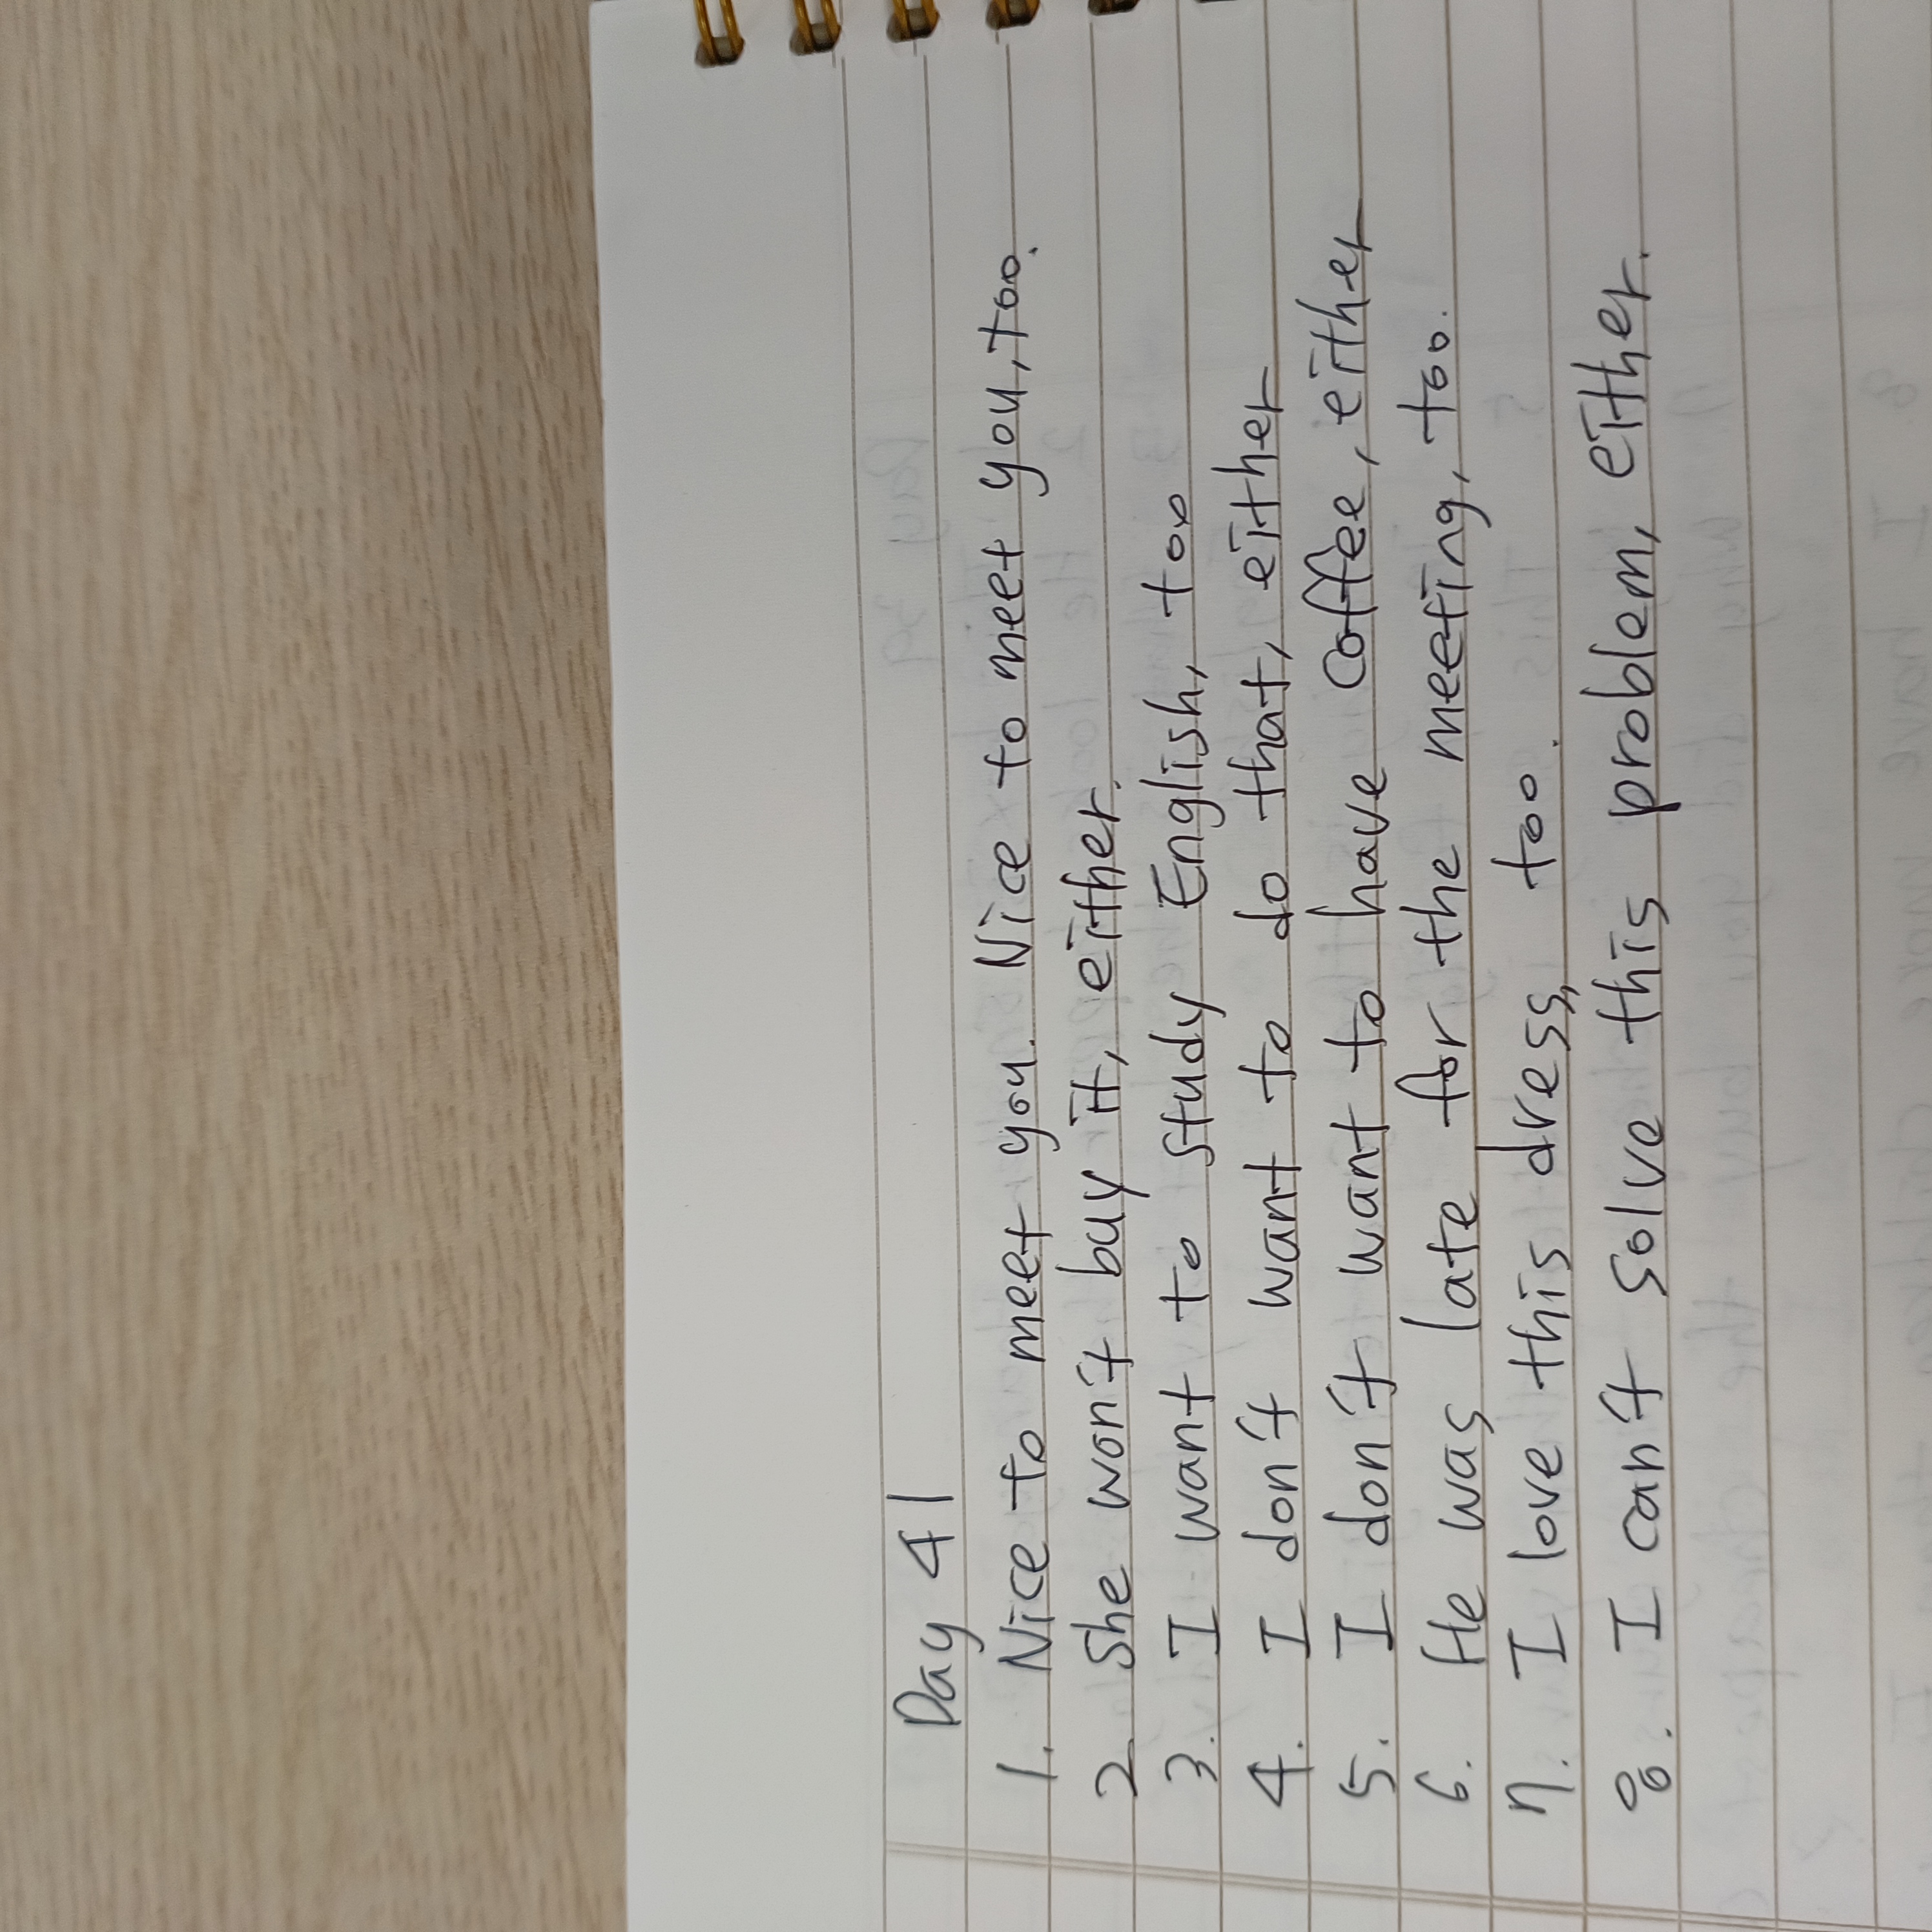 Day 41
1. Nice to meet you. Nice to meet you, too.
2 She won't buy it, either.
3. I want to study English, too
4. I don't want to do that, either
5. I don't want to have coffee, either
6. He was late for the meeting, too.
7. I love this dress, too.
8. I can't solve this problem, either.